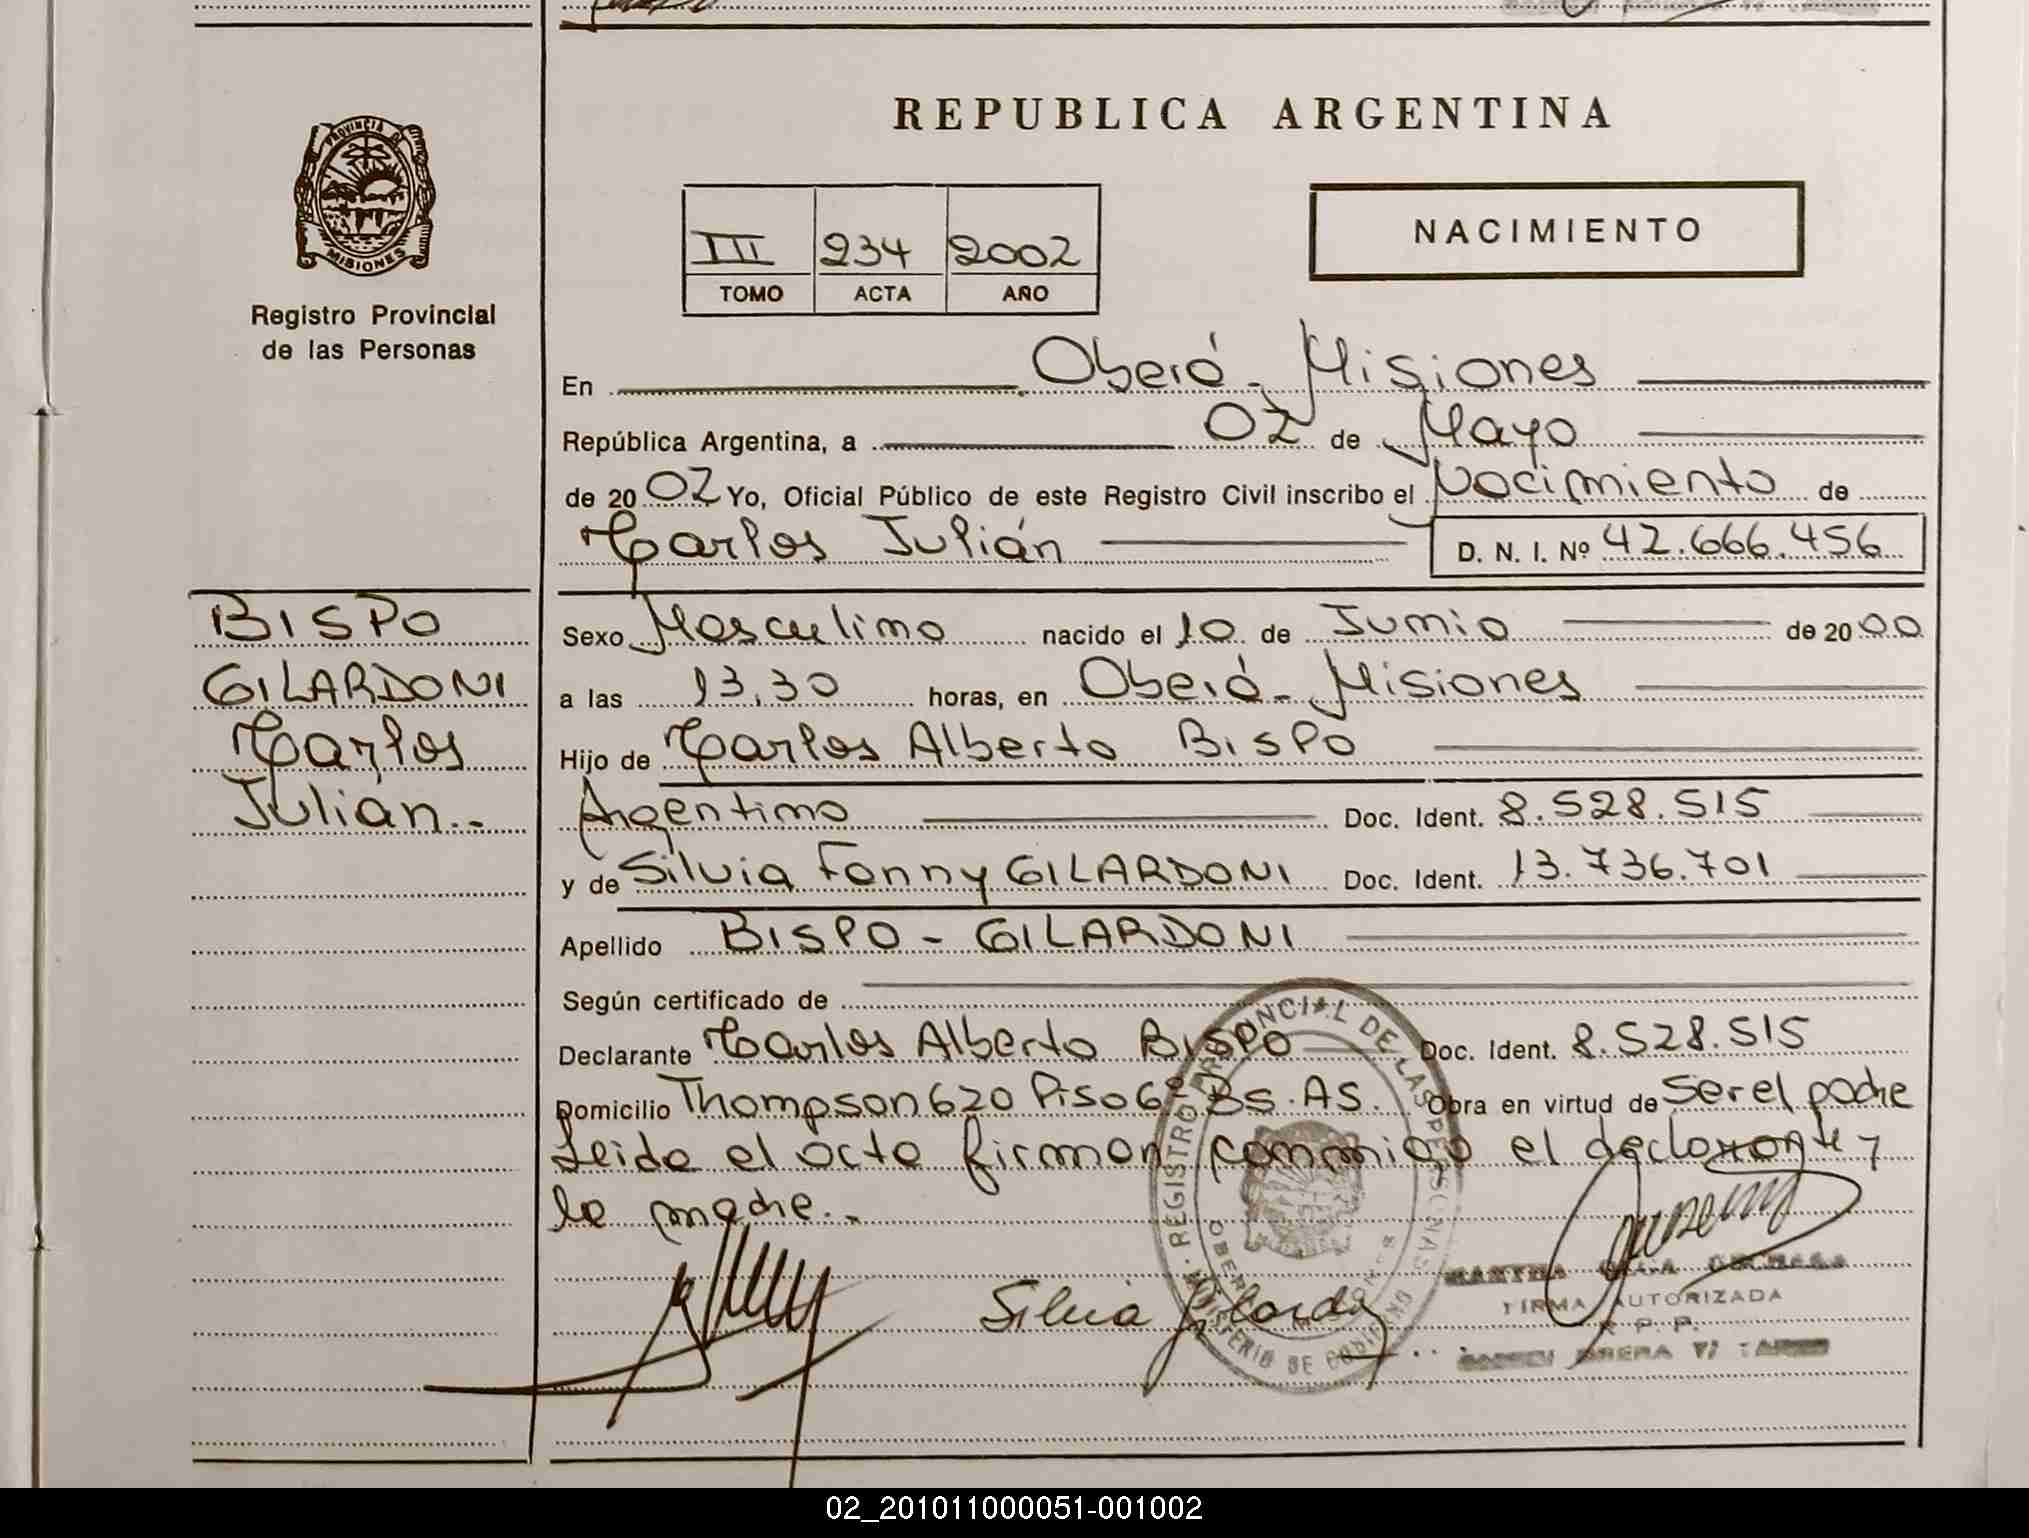 REPUBLICA ARGENTINA
PROVINCIA D
MISIONES
Registro Provincial
de las Personas
III 234 2002
TOMO ACTA AÑO
NACIMIENTO
En Oberá - Misiones
República Argentina, a 02 de Mayo
de 2002 Yo, Oficial Público de este Registro Civil inscribo el nacimiento de
Carlos Julián D. N. I. Nº 42.666.456
BISPO
GILARDONI
Carlos
Julián.-
Sexo Masculino nacido el 10 de Junio de 2000
a las 13,30 horas, en Oberá - Misiones
Hijo de Carlos Alberto BISPO
Argentino Doc. Ident. 8.528.515
y de Silvia Fanny GILARDONI Doc. Ident. 13.736.701
Apellido BISPO - GILARDONI
Según certificado de
Declarante Carlos Alberto BISPO Doc. Ident. 8.528.515
Domicilio Thompson 620 Piso 6º Bs. As. Obra en virtud de ser el padre
Leida el acta firman conmigo el declarante y
la madre.-
Silvia Gilardoni
REGISTRO PROVINCIAL DE LAS PERSONAS
MINISTERIO DE GOBIERNO
MARTHA
FIRMA AUTORIZADA
R. P. P.
OBERA
02_201011000051-001002